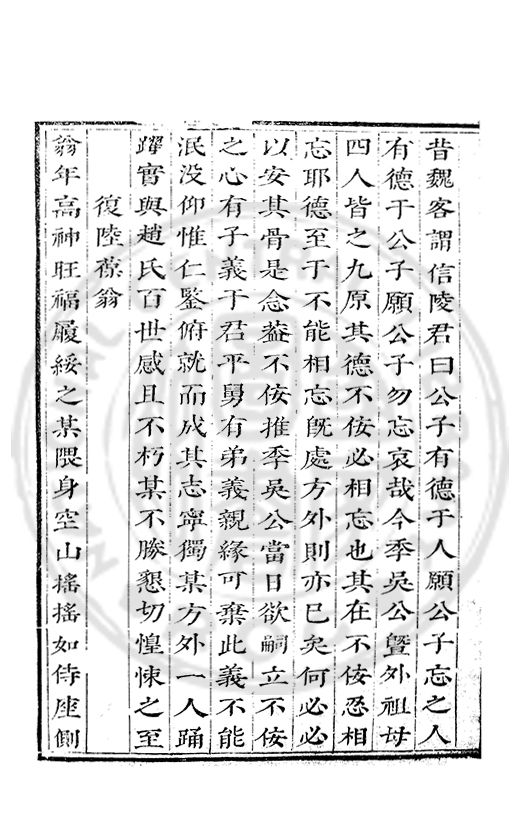 昔魏客謂信陵君曰公子有德于人願公子忘之人
有德于公子願公子勿忘哀哉今季吳公曁外祖母
四人皆之九原其德不佞必相忘也其在不佞忍相
忘耶德至于不能相忘旣處方外則亦已矣何必必
以安其骨是念葢不佞推季吳公當日欲嗣立不佞
之心有子義于君平舅有弟義親緣可棄此義不能
泯没仰惟仁鑒俯就而成其志寧獨某方外一人踊
躍實與趙氏百世感且不朽某不勝懇切惶悚之至
復陸葆翁
翁年高神旺福履綏之某隈身空山搖搖如侍座側